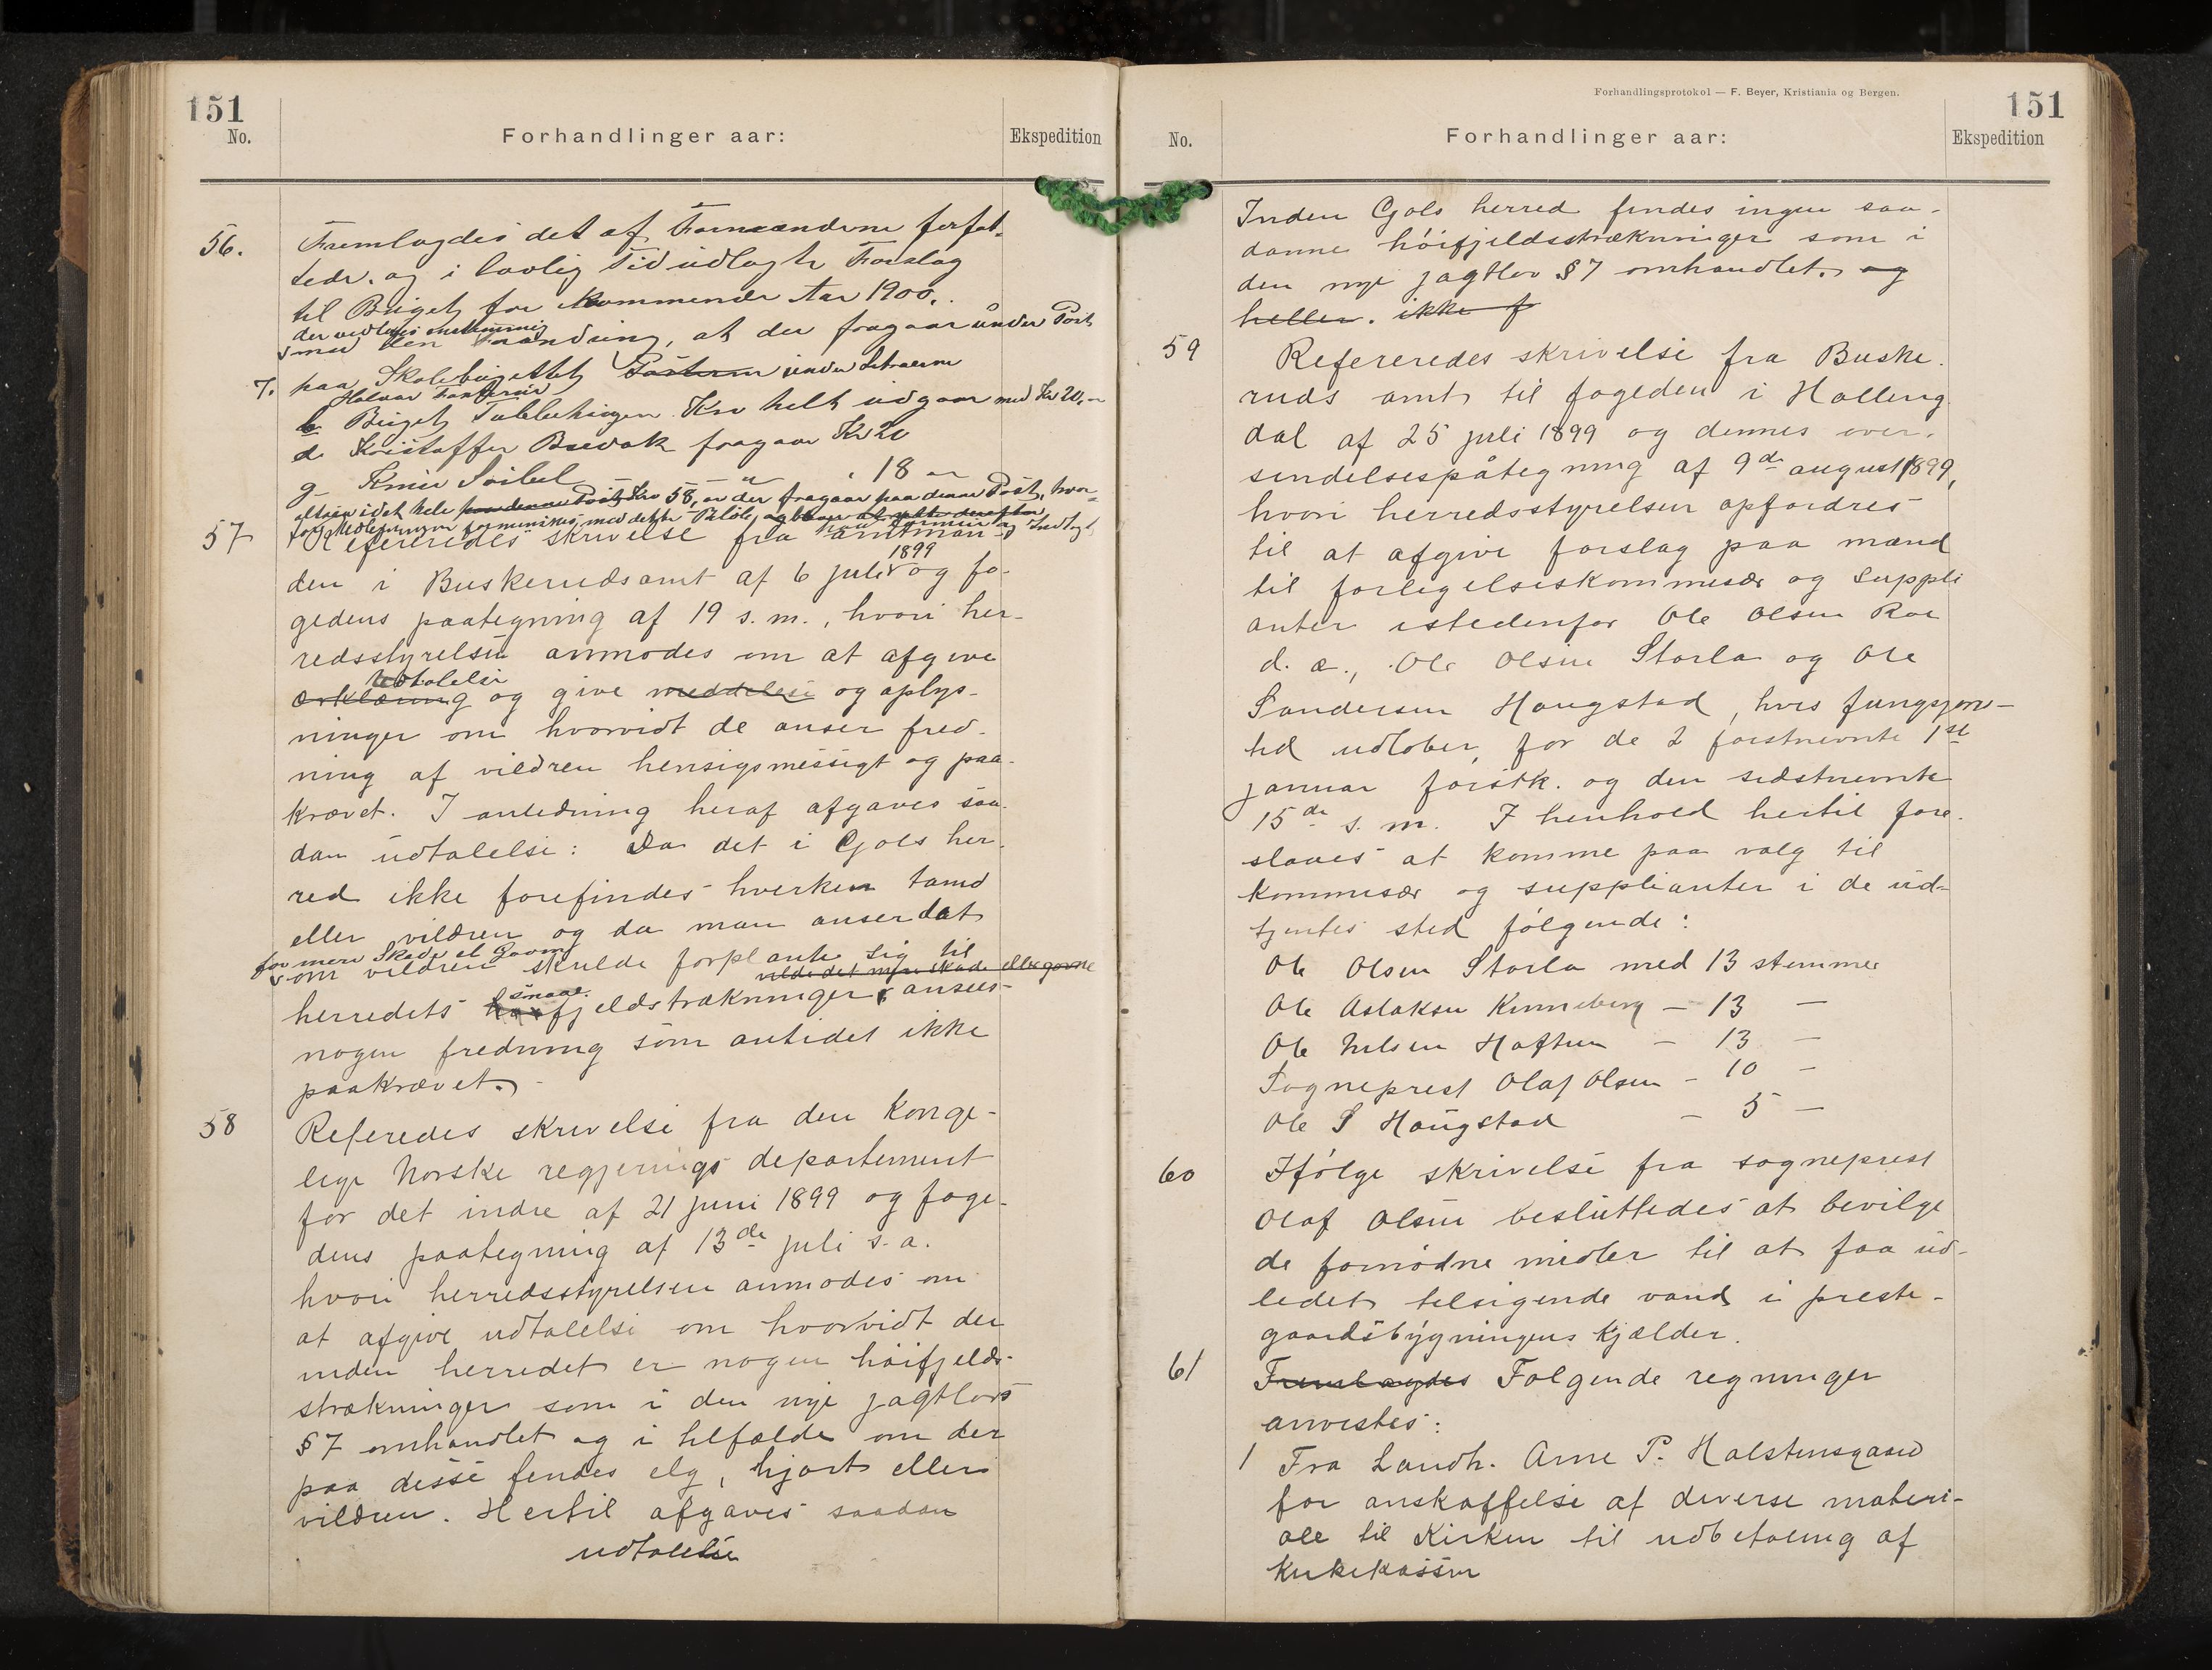 151
No.
Forhandlinger aar:
Ekspedition
56. Fremlagdes det af Formændene forfat-
tede. og i lovlig Tid udlagte Forslag
til Büget for kommende Aar 1900.
der vedtages enstemmig
med den Forandring, at der fragaar under Post
7. paa Skolebügettet Posterne under Litraerne
Halvor
b. Büget Kr helt udgaar med Kr 20,-
d. Kristoffer fragaar Kr 20
g - „ - 18 -
altsaa idet hele paa denne Post Kr 58, - der fragaar paa denne Post, hvor-
med dette Beløb,
57 Refereredes skrivelse fra amtman-
den i Buskerudsamt af 6 juli 1899 og fo-
gedens paategning af 19 s. m., hvori her-
redsstyrelsen anmodes om at afgive
Udtalelse
Erklæring og give meddelese og oplys-
ninger om hvorvidt de anser fred-
ning af vildren hensigsmessigt og paa-
krævet. I anledning heraf afgaves saa-
dan udtalelse: Da det i Gols her-
red ikke forefindes hverken tamd
eller vildren og da man anser dat
for mere Skade el Gavn
om vildren skulde forplante sig til
vilde det mere skade elle gavne
herredets smaa fjeldstrækninger, ansees
nogen fredning som antidet ikke
paakrævet.
58 Referedes skrivelse fra den Konge-
lige Norske regjerings departement
for det indre af 21 juni 1899 og foge-
dens paategning af 13de juli s. a.
hvori herredsstyrelsen anmodes om
at afgive udtalelse om hvorvidt der
inden herredet er nogen høifjelds-
strækninger som i den nye jagtlovs
§ 7 omhandlet og i tilfælde om der
paa disse findes elg, hjort eller
vildren. Hertil afgaves saadan
udtalelse
Forhandlingsprotokol — F. Beyer, Kristiania og Bergen.
151
No.
Forhandlinger aar:
Ekspedition
Inden Gols herred findes ingen saa-
danne høifjeldsstrækninger som i
den nye jagtlov § 7 omhandlet. og
heller. ikke f
59 Refereredes skrivelse fra Buske-
ruds amt til fogeden i Halling-
dal af 25 juli 1899 og dennes over-
sendelsespåtegning af 9de august 1899,
hvori herredsstyrelsen opfordres
til at afgive forslag paa mænd
til forligelseskommisær og suppli
anter istedenfor Ole Olsen Roe
d. æ., Ole Olsen Storla og Ole
Sandersen Haugstad, hvis fungsjons-
tid udløber, for de 2 førstnevnte 1ste
januar førstk. og den sidstnevnte
15de s. m. I henhold hertil fore-
slaaes at komme paa valg til
kommisær og supplianter i de ud-
tjentes sted følgende:
Ole Olsen Storla med 13 stemmer
Ole Aslaksen Kinneberg — 13 —
Ole Nilsen Haftun — 13 —
Sogneprest Olaf Olsen — 10 —
Ole S Haugstad — 5 —
60 Ifølge skrivelse fra sogneprest
Olaf Olsen besluttedes at bevilge
de fornødne midler til at faa ud-
ledet tilsigende vand i preste-
gaardsbygningens kjælder.
61 Fremlagdes Følgende regninger
anvistes:
1 Fra Landh. Arne P. Halstensgaard
for anskaffelse af diverse materi-
ale til Kirken til udbetaling af
Kirkekassen